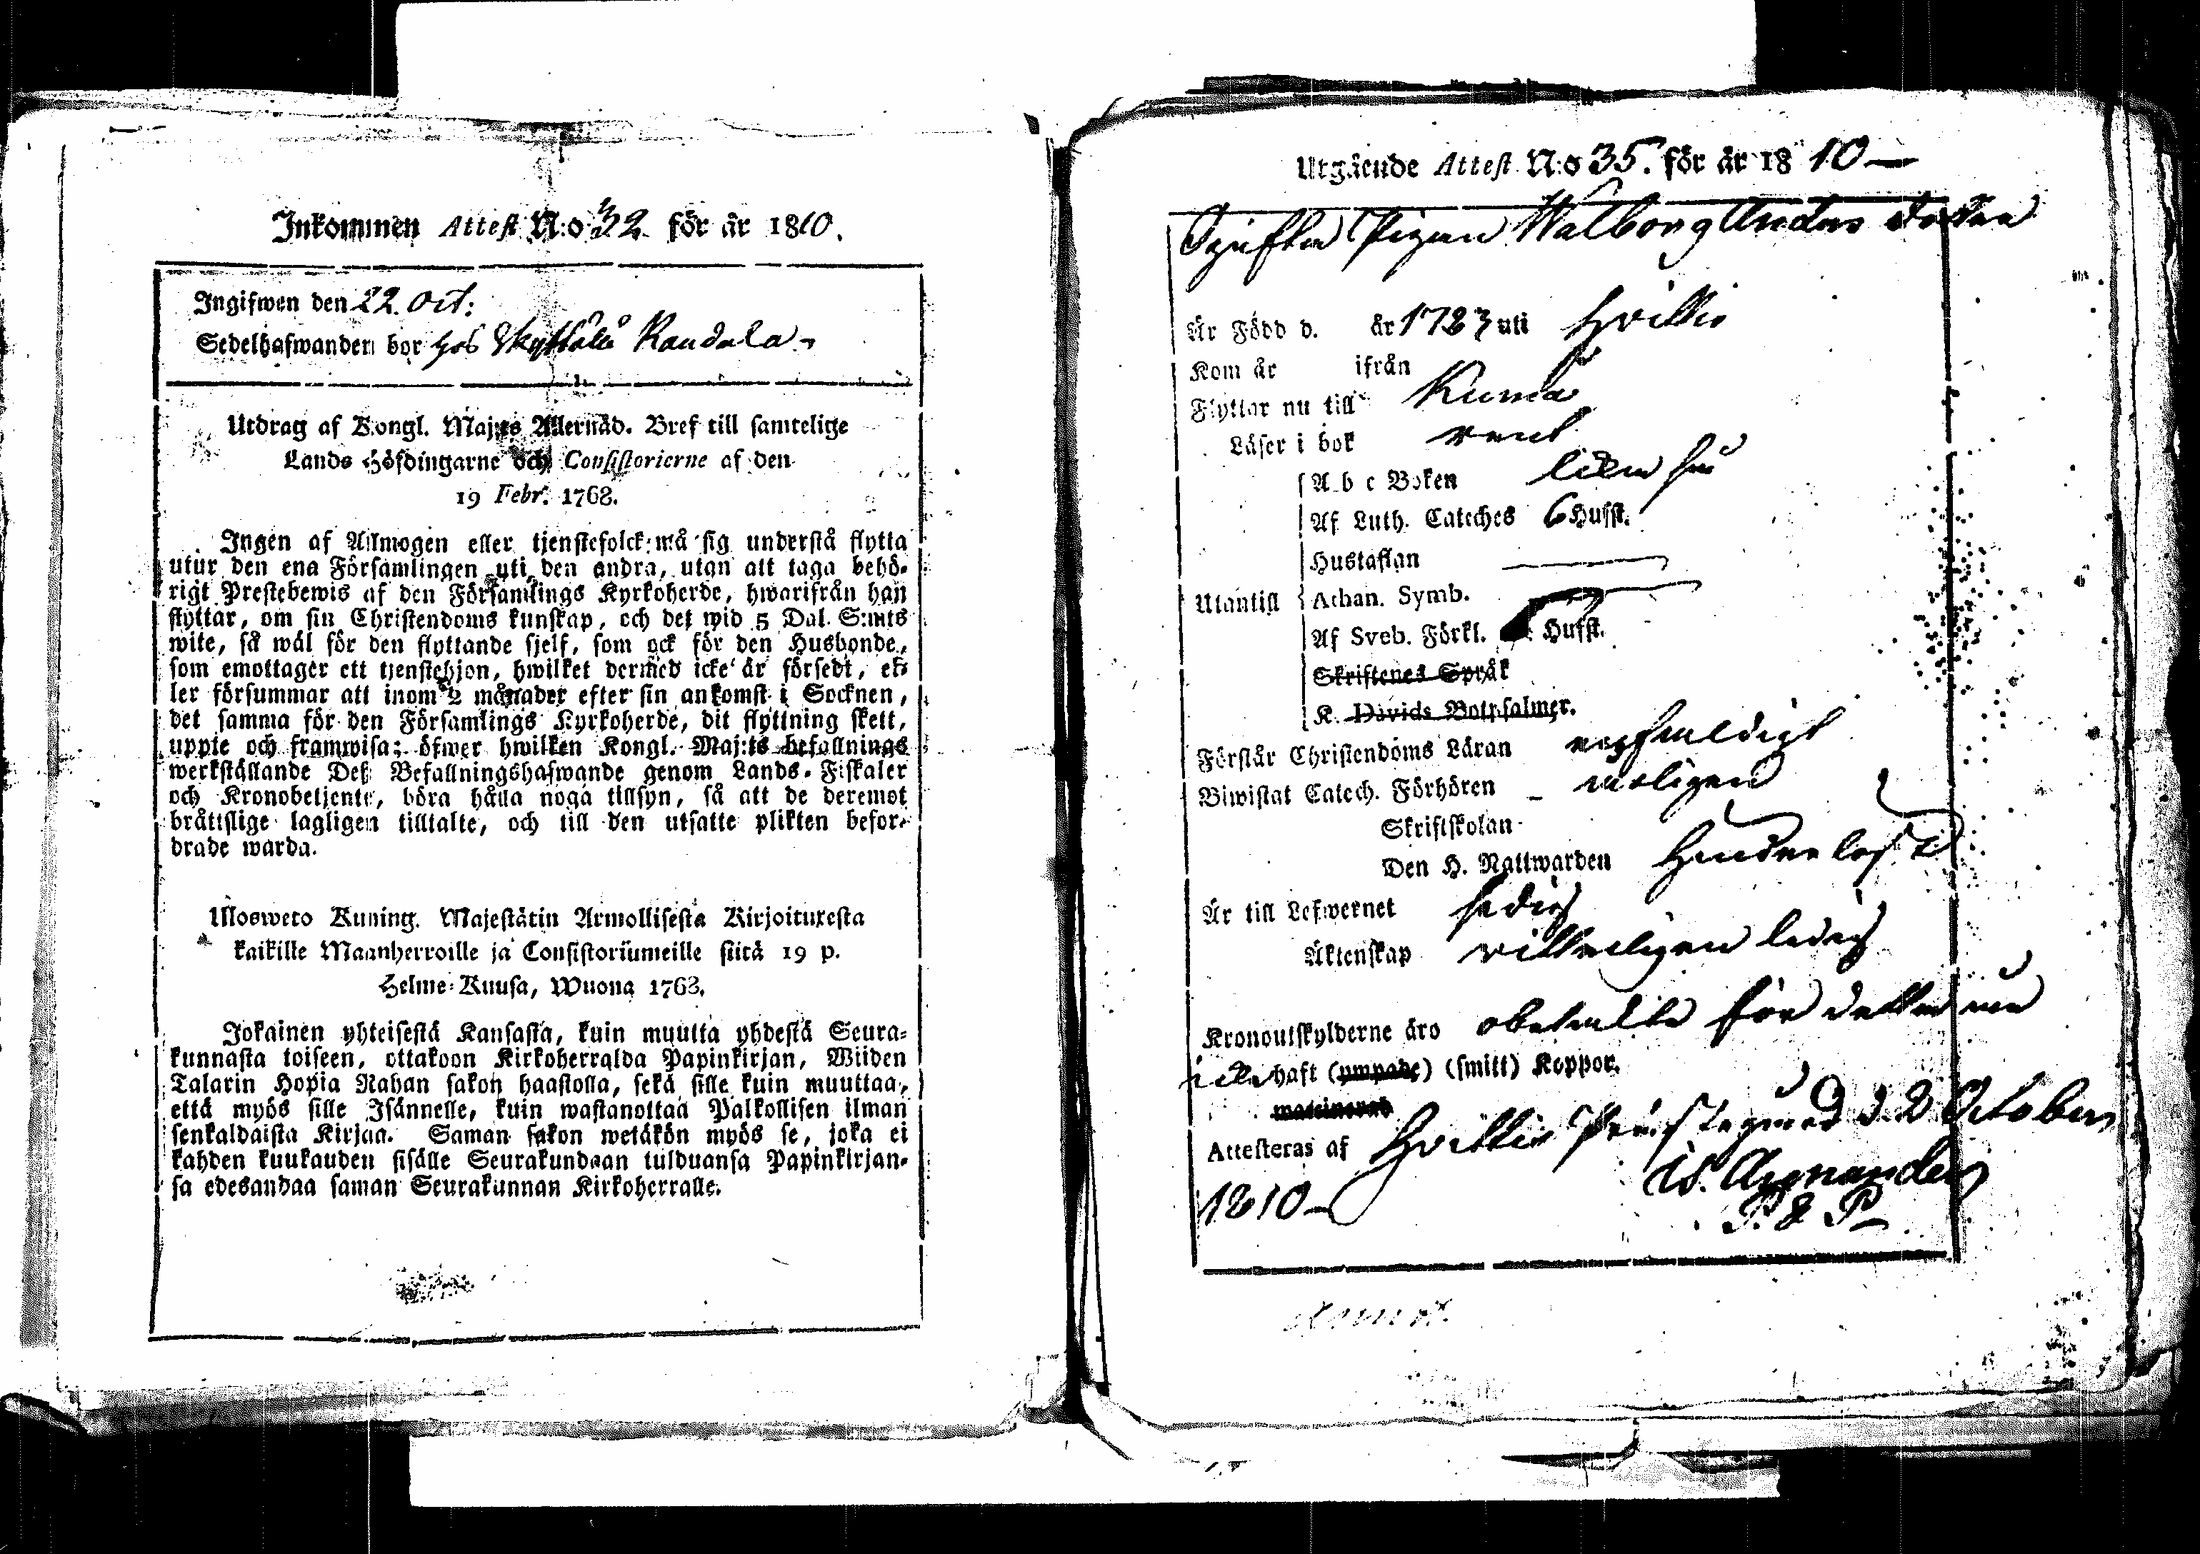 Inkommen Attest N:o 32 för år 1810.
Ingifwen den 22. Oct:
Sedelhafwanden bor hos Skyttälä Kandala
Utdrag af Kongl. Maj:ts Allernåd. Bref till samtelige
Lands Höfdingarne och Consistorierne af den
19 Febr. 1768.
Ingen af Allmogen eller tjenstefolck må sig understå flytta
utur den ena Församlingen uti den andra, utan att taga behö-
rigt Prestebewis af den Församlings Kyrkoherde, hwarifrån han
flyttar, om sin Christendoms kunskap, och det wid 5 Dal. S:mts
wite, så wäl för den flyttande sjelf, som ock för den Husbonde,
som emottager ett tjenstehjon, hwilket dermed icke är försedt, el-
ler försummar att inom 2 månader efter sin ankomst i Socknen,
det samma för den Församlings Kyrkoherde, dit flyttning skett,
uppte och framwisa; öfwer hwilken Kongl. Maj:ts befallnings
werkställande Deß Befallningshafwande genom Lands-Fiskaler
och Kronobetjente, böra hålla noga tillsyn, så att de deremot
bråttslige lagligen tilltalte, och till den utsatte plikten befor-
drade warda.
Ulosweto Kuning. Majestätin Armollisesta Kirjoituxesta
kaikille Maanherroille ja Consistoriumeille siitä 19 p.
Helme-Kuusa, Wuona 1768.
Jokainen yhteisestä Kansasta, kuin muutta yhdestä Seura-
kunnasta toiseen, ottakoon Kirkoherralda Papinkirjan, Wiiden
Talarin Hopia Rahan sakon haastolla, sekä sille kuin muuttaa,
että myös sille Isännelle, kuin wastanottaa Palkollisen ilman
senkaldaista Kirjaa. Saman sakon wetäkön myös se, joka ei
kahden kuukauden sisälle Seurakundaan tulduansa Papinkirjan-
sa edesandaa saman Seurakunnan Kirkoherralle.
Utgående Attest N:o 35. för år 1810
Pigan Walborg Anders dotter
Är Född d. år 1783 uti Hvittis
Kom år ifrån
Flyttar nu till Kumå
Läser i bok rent
Utantill
A b c Boken
Af Luth. Cateches 6 Hufst.
Hustaflan
Athan. Symb.
Af Sveb. Förkl. Hufst.
Skriftenes Språk
K. Davids Botpsalmer.
Förstår Christendoms Läran enfaldigt
Biwistat Catech. Förhören
Skriftskolan
Den H. Nattwarden
Är till Lefwernet sedig
Äktenskap ledig
Kronoutskylderne äro obetalte för detta
icke haft (ympade) (smitt) Koppor.
Attesteras af Hvittis Prästegård d. 2 October
1810